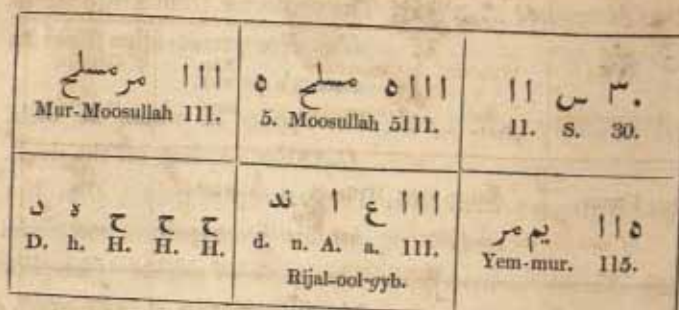 مرمسلح ١١١
Mur-Moosullah 111.
٥ مسلح ٥١١١
5. Moosullah 5111.
١١ س ٣٠
11. S. 30.
د ه ح ح ح
D. h. H. H. H.
ند ا ع ١١١
d. n. A. a. 111.
Rijal-ool-gyb.
يم مر ١١٥
Yem-mur. 115.